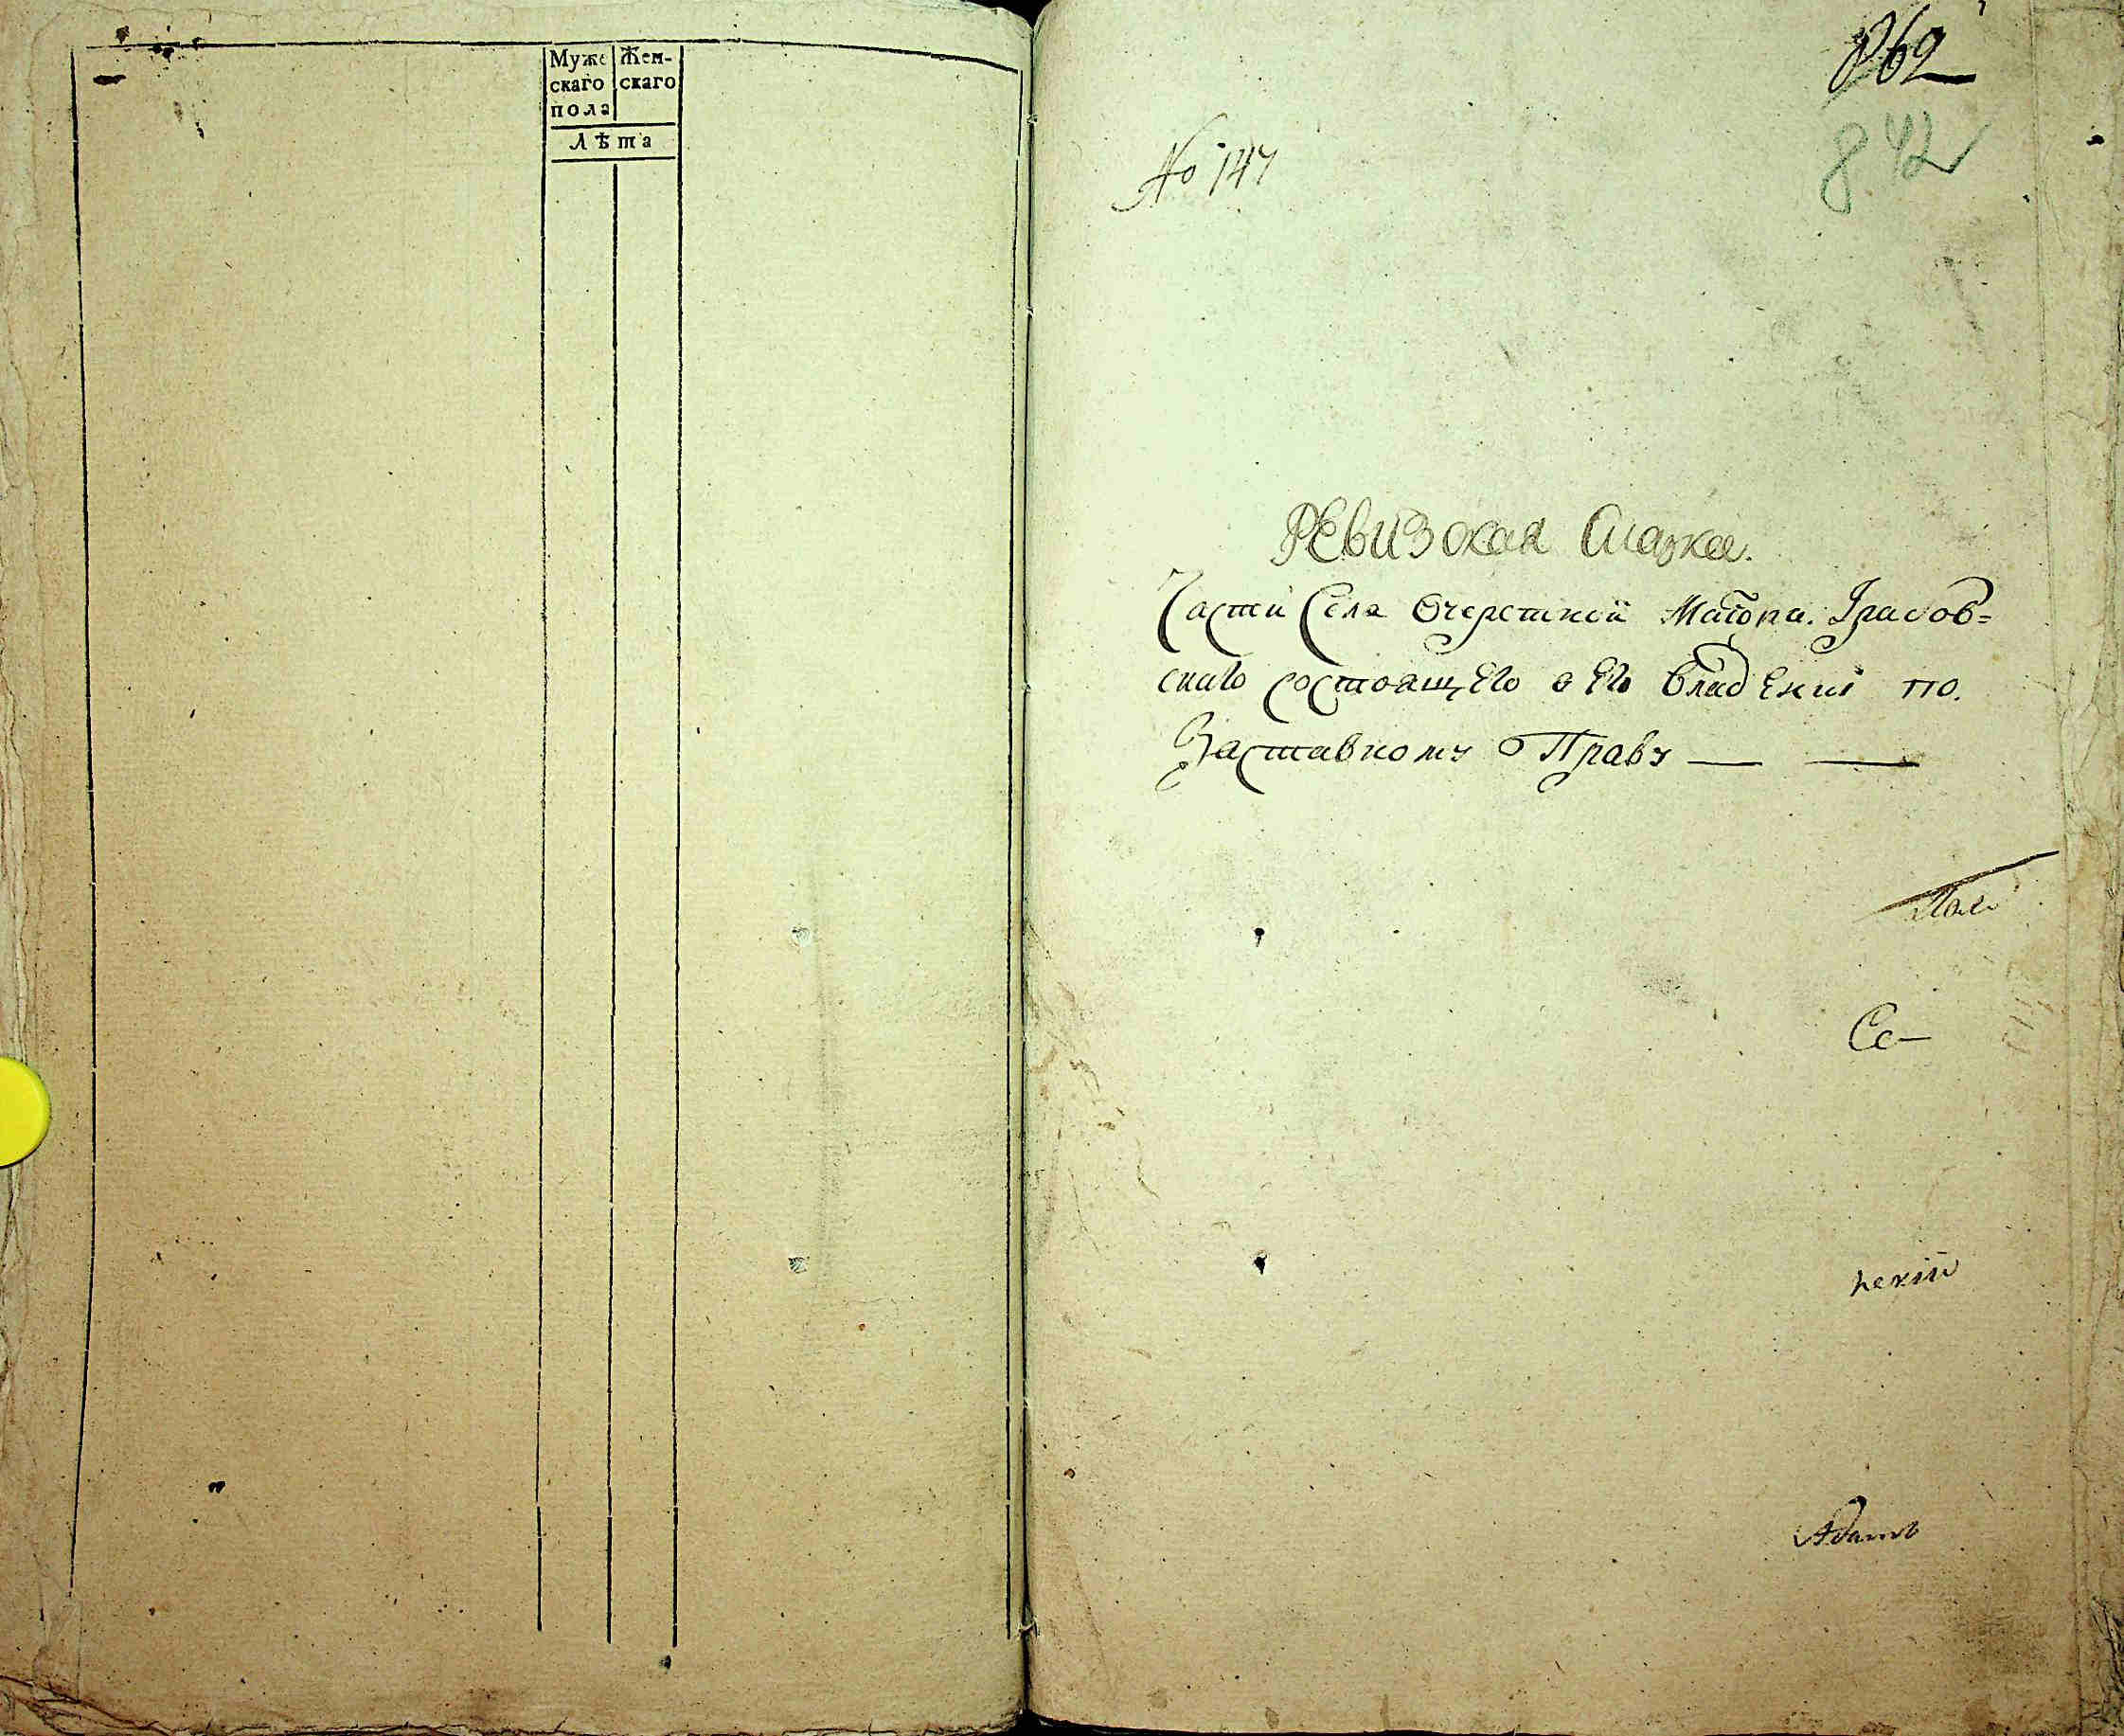 Муже Жен-
скаго скаго
пола
Лѣта
862
842
No 147
Ревизская Сказка.
Части Села Очеретной Маіора. Грасов-
скаго состоящего в его владении по.
Заставному Праву — —
Се-
Адамъ